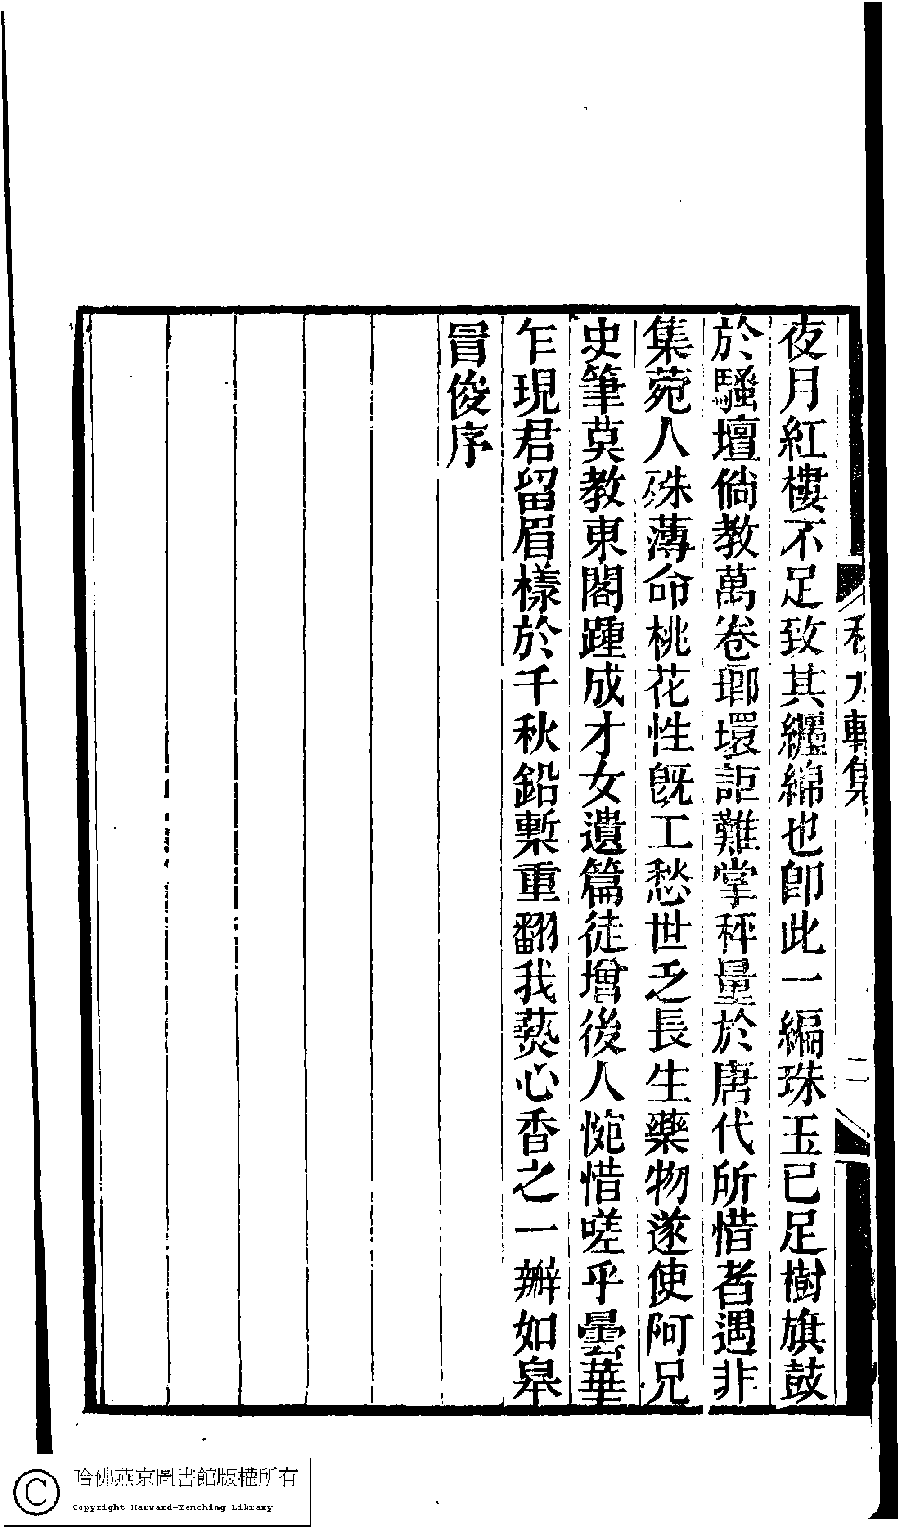 夜月紅樓不足致其纏綿也卽此一編珠玉已足樹旗鼓
於騷壇倘教萬卷瑯環詎難掌秤量於唐代所惜者遇非
集菀人殊薄命桃花性旣工愁世乏長生藥物遂使阿兄
史筆莫教東閣踵成才女遺篇徒增後人惋惜嗟乎曇華
乍現君留眉樣於千秋鉛槧重翻我爇心香之一瓣如皋
冒俊序
軒集
二
哈佛燕京圖書館版權所有
Copyright Harvard-Yenching Library